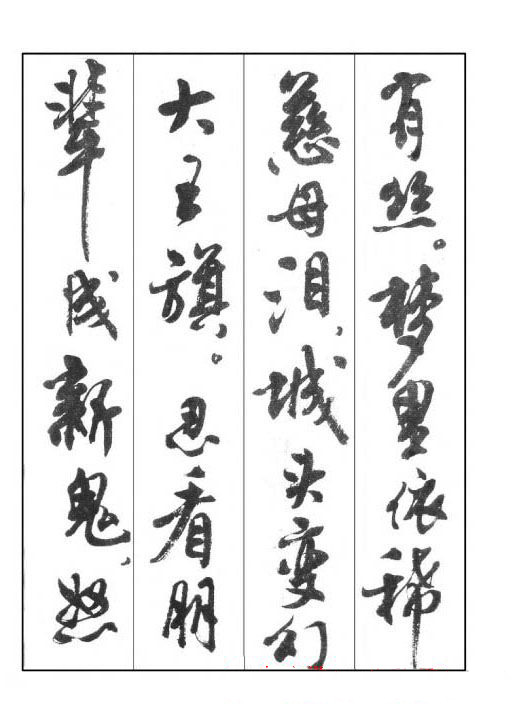 有丝。梦里依稀
慈母泪，城头变幻
大王旗。忍看朋
辈成新鬼，怒